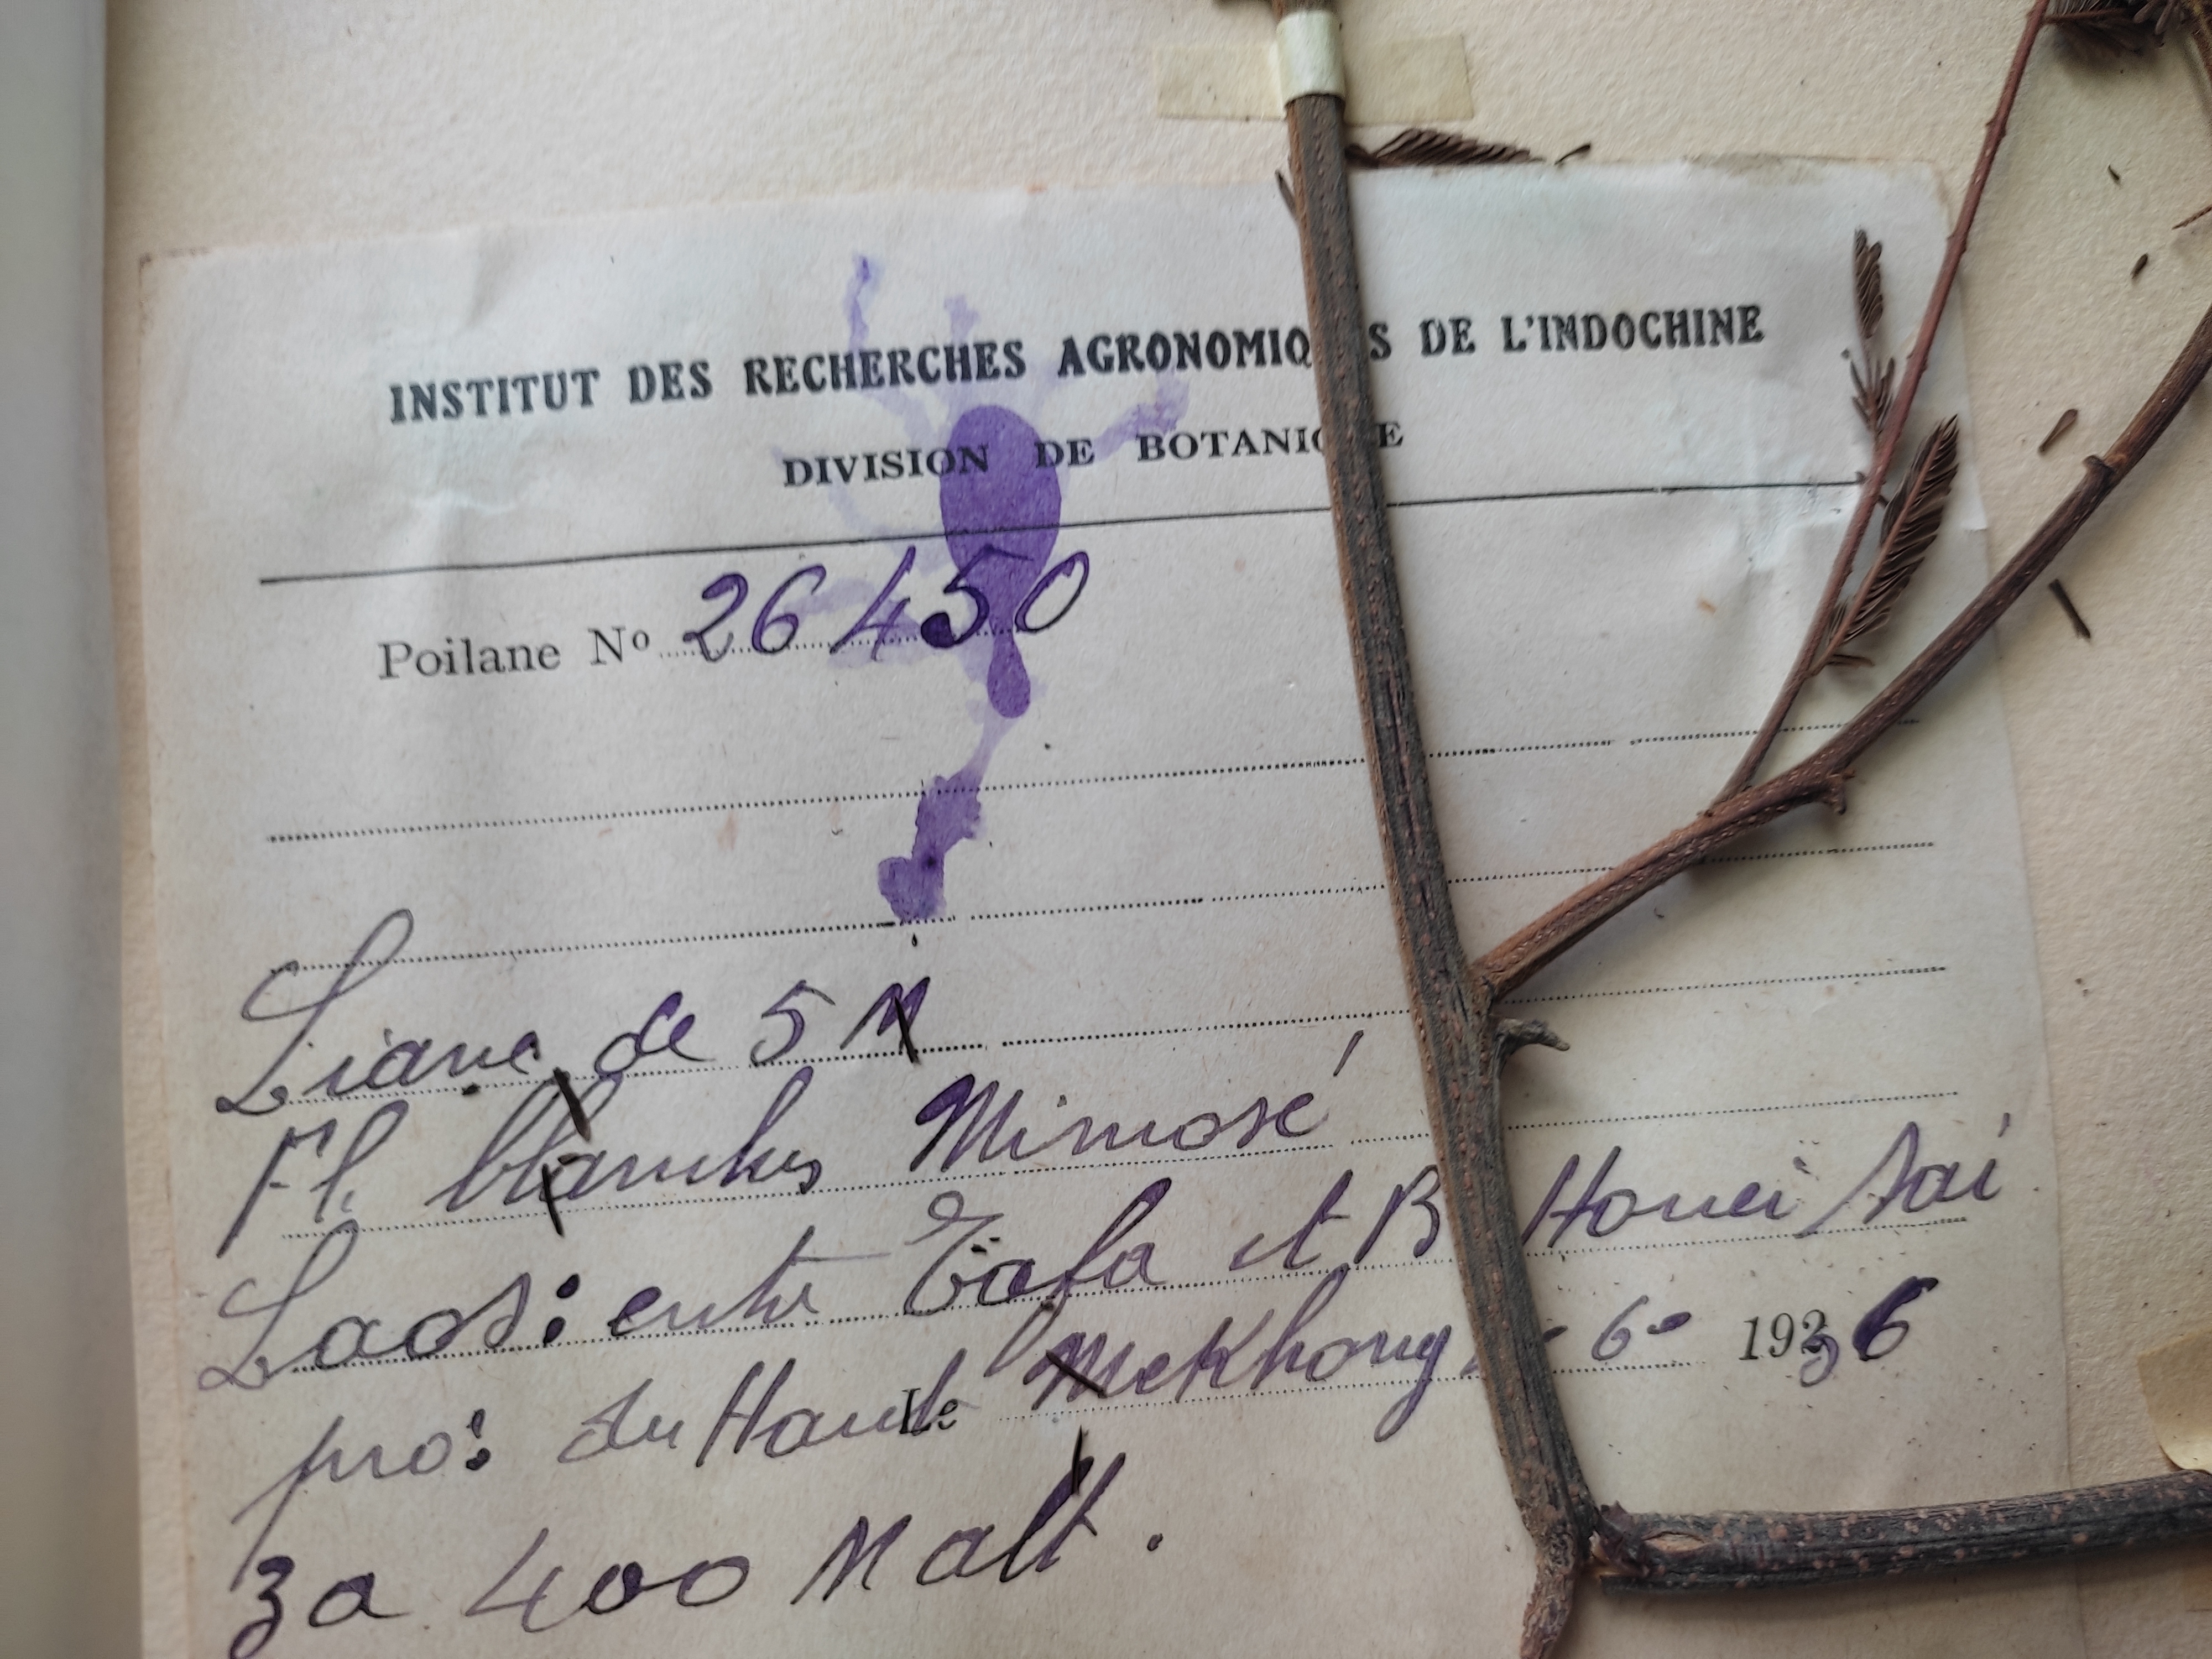 INSTITUT DES RECHERCHES AGRONOMIQ S DE L'INDOCHINE
DIVISION DE BOTANIQ E
Poilane Nº 26450
Liane de 5 M
Fl. blanches Mimosé
Laos: entre Tafa et B Houei Sai
pro: du Haut Mekhong - 6- 1936
Le
3 a 400 M alt.